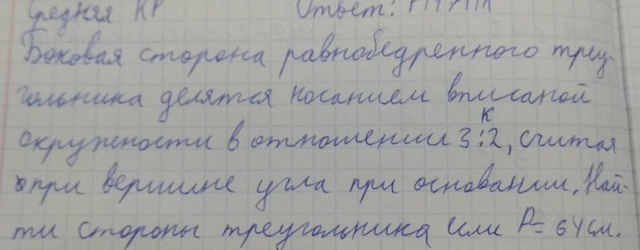 Средняя КР Ответ:
Боковая сторона равнобедренного треу-
гольника делятся косанием вписаной
окружности в отношении 3 к : 2, считая
при вершине угла при основании. Най-
ти стороны треугольника если P = 64 см.